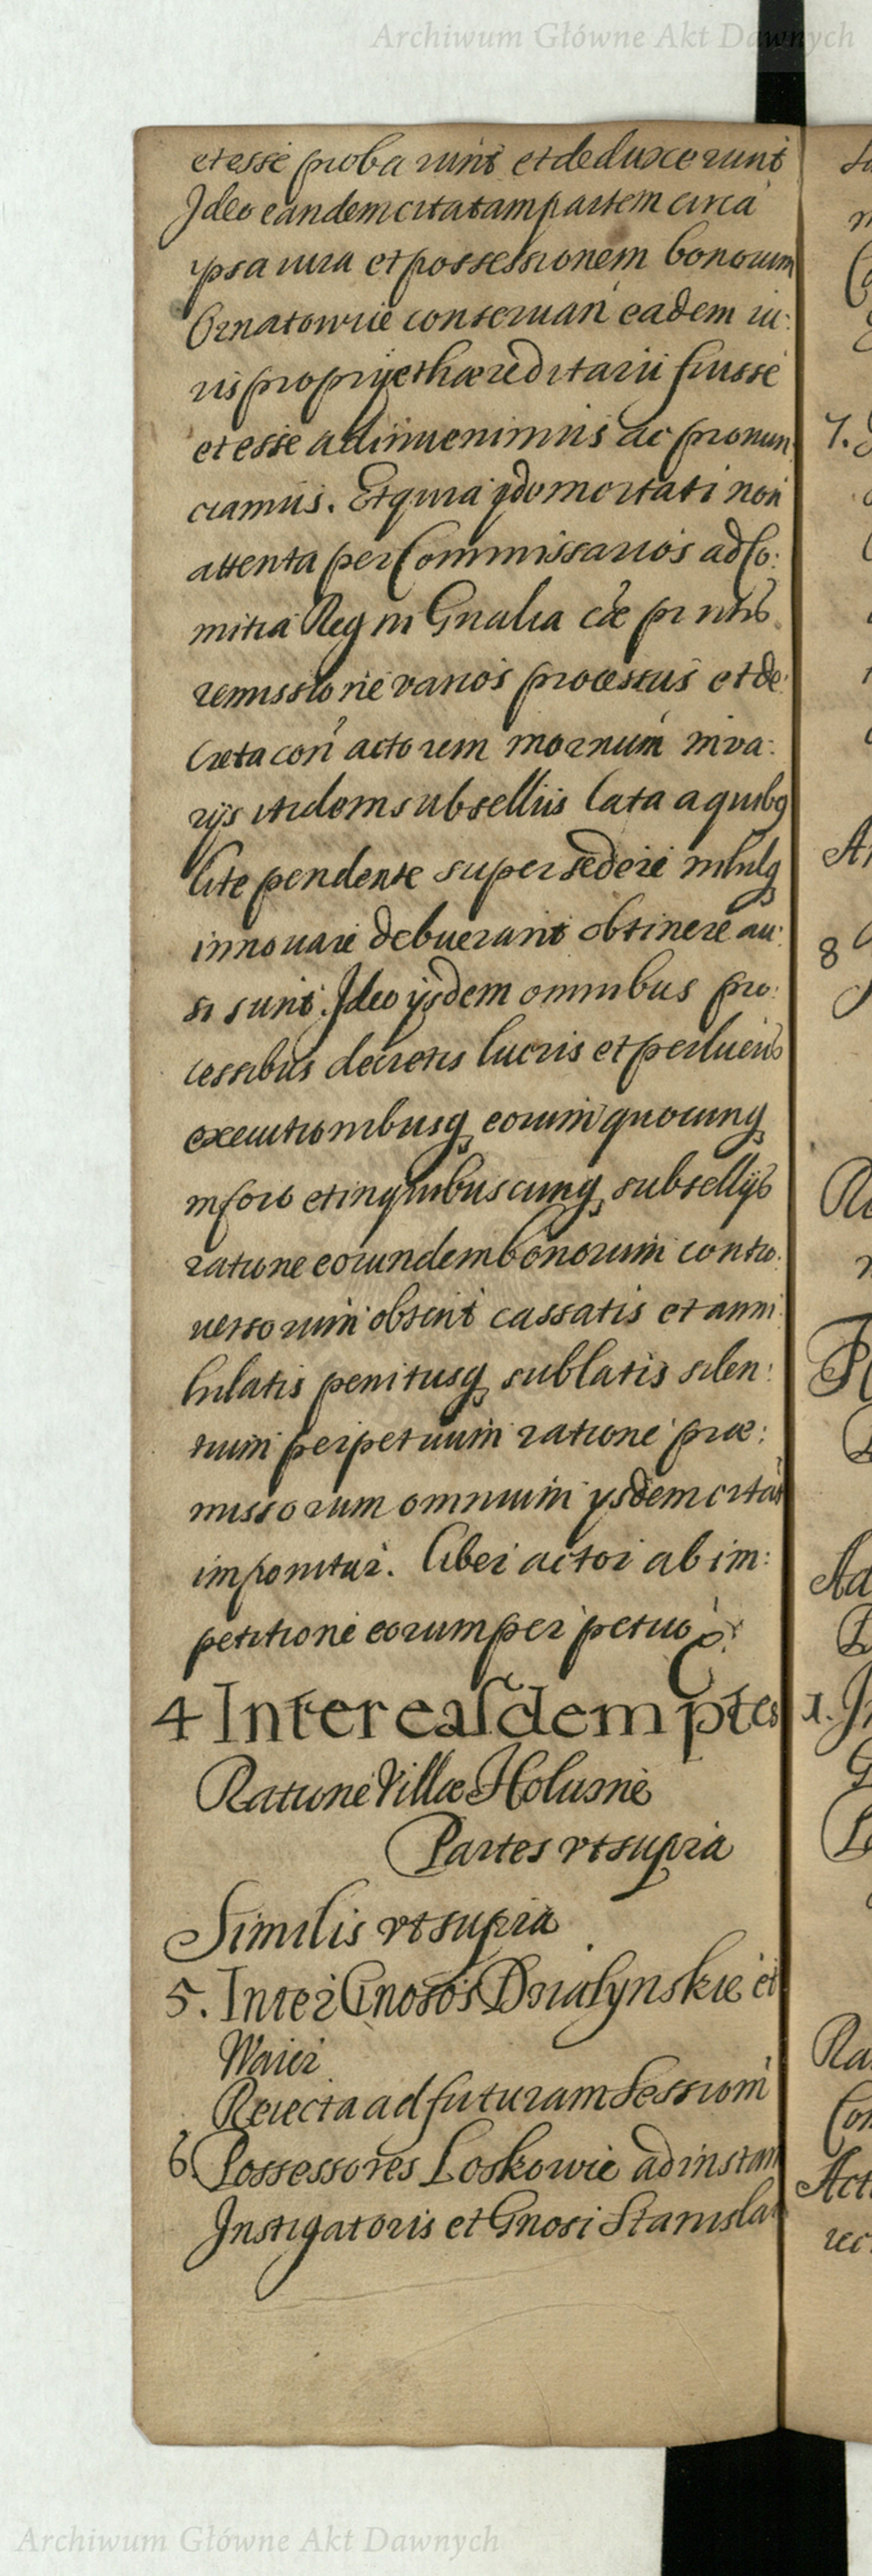 Archiwum Główne Akt Dawnych
et esse probarunt et deduxerunt
Ideo eandem citatam partem circa
ipsa iura et possessionem bonorum
Ornatowie conseruari eadem iu:
ris proprij et hæreditarii fuisse
et esse adinuenimus ac pronun
ciamus. Et quia ijdem citati non
attenta per Commissarios ad Co:
mitia Regni Gnalia cæ pr ntis
remissione varios processus et de:
creta con actorem in
rijs itidem subselliis lata a quibq
lite pendente supersedere nihilq
innouare debuerant obtinere au:
si sunt. Ideo ijsdem omnibus pro:
cessibus decretis lucris et perlucris
executionibusq eorum quocunq
in foro et in quibuscunq subsellijs
ratione eorundem bonorum contro:
uersorum obtent cassatis et anni:
hilatis penitusq sublatis silen:
tium perpetuum ratione præ:
missorum omnium ysdem citat
imponitur. Liber actor ab im:
petitione eorum perpetuo
4 Inter easdem ptes
Ratione Villæ Holusne
Partes vt supra
Similis vt supra
5. Inter Gnosos Dzialynskie et
Waier
Reiecta ad futuram sessiom
6. Possessores Loskowie ad instan
Instigatoris et Gnosi Stanisla
7.
8
1.
Archiwum Główne Akt Dawnych